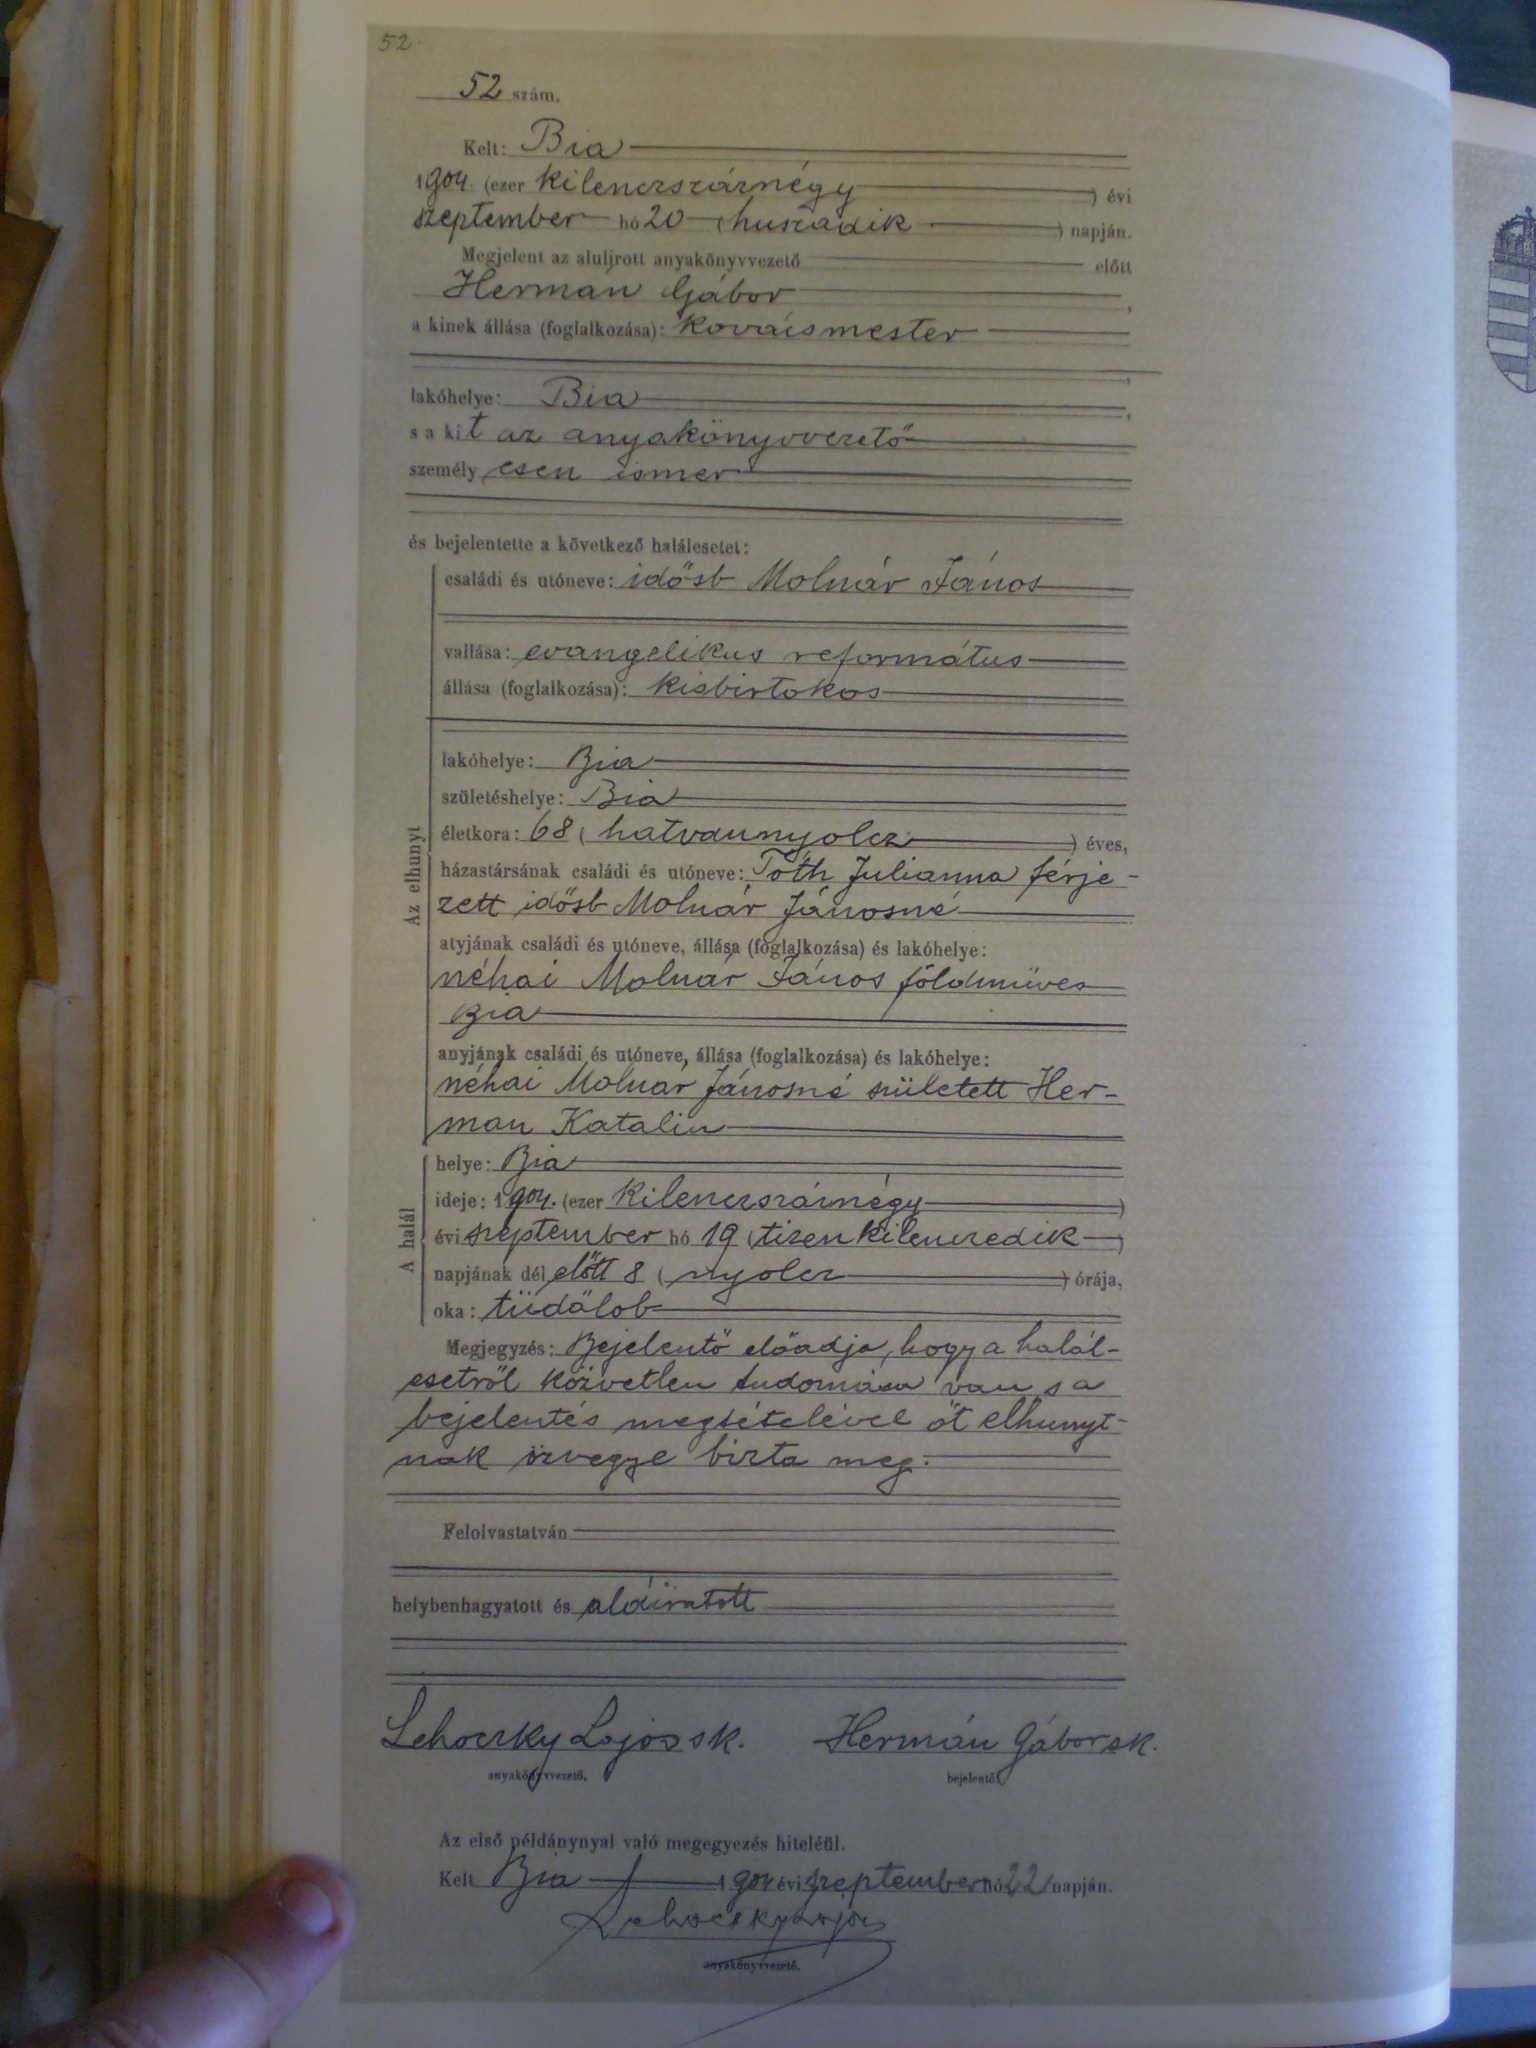 52.
52 szám.
Kelt: Bia
1904. (ezer kilenczszáznégy) évi
szeptember hó 20 (huszadik) napján.
Megjelent az alulirott anyakönyvvezető előtt
Hermán Gábor,
a kinek állása (foglalkozása): kovácsmester
,
lakóhelye: Bia,
s a kit az anyakönyvvezető
személyesen ismer
és bejelentette a következő halálesetet:
Az elhunyt
családi és utóneve: idősb Molnár János
vallása: evangelikus református
állása (foglalkozása): kisbirtokos
lakóhelye: Bia
születéshelye: Bia
életkora: 68 (hatvannyolcz) éves,
házastársának családi és utóneve: Tóth Julianna férje-
zett idősb Molnár Jánosné
atyjának családi és utóneve, állása (foglalkozása) és lakóhelye:
néhai Molnár János földmüves
Bia
anyjának családi és utóneve, állása (foglalkozása) és lakóhelye:
néhai Molnár Jánosné született Her-
man Katalin
A halál
helye: Bia
ideje: 1904. (ezer kilenczszáznégy)
évi szeptember hó 19 (tizenkilenczedik)
napjának dél előtt 8 (nyolcz) órája,
oka: tüdőlob
Megjegyzés: Bejelentő előadja, hogy a halál-
esetről közvetlen tudomása van s a
bejelentés megtételével őt elhunyt-
nak özvegye bizta meg.
Felolvastatván
helybenhagyatott és aláiratott
Lehoczky Lajos sk. Hermán Gábor sk.
anyakönyvvezető. bejelentő.
Az első példánynyal való megegyezés hiteléül.
Kelt Bia 1904 évi szeptember hó 22 napján.
Lehoczky Lajos
anyakönyvvezető.